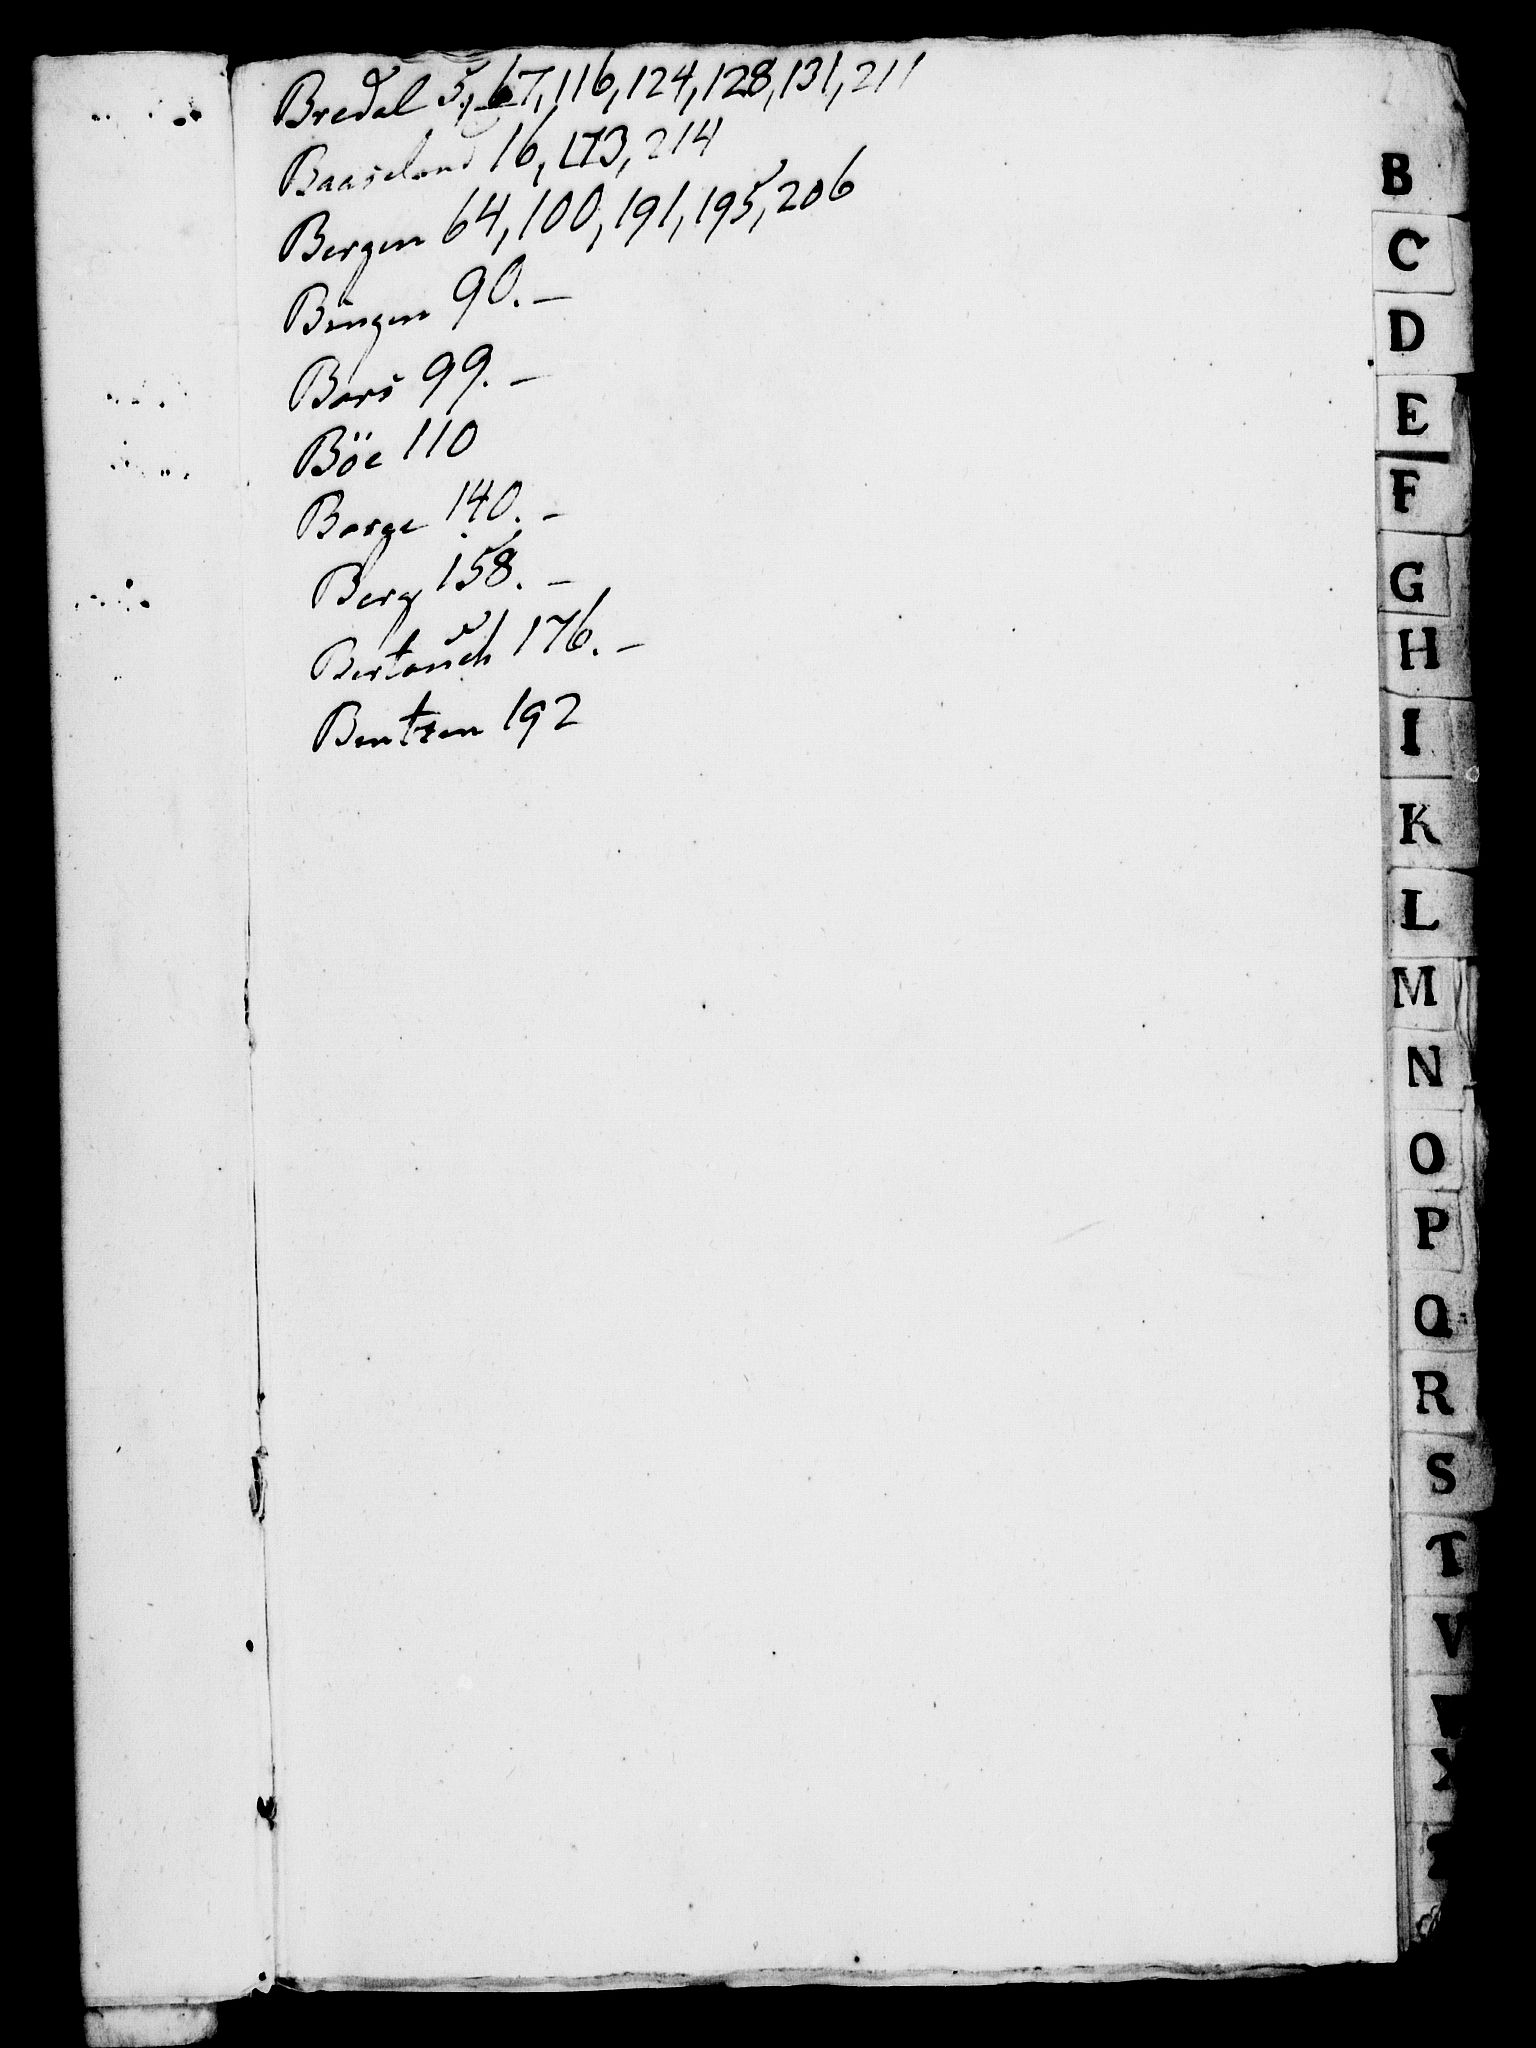 Bredal 5, 67, 116, 124, 128, 131, 211
Baaseland 16, 173, 214
Bergen 64, 100, 191, 195, 206
Bingen 90. –
Bors 99. –
Böe 110
Borge 140. –
Berg 158. –
Bertouch 176. –
Bentzen 192
B
C
D
E
F
G
H
I
K
L
M
N
O
P
Q
R
S
T
V